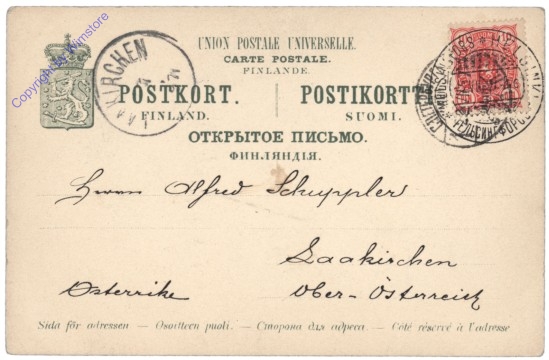 Copyright by Wimstore
UNION POSTALE UNIVERSELLE.
CARTE POSTALE.
FINLANDE.
POSTKORT. POSTIKORTTI
FINLAND. SUOMI.
ОТКРЫТОЕ ПИСЬМО.
ФИНЛЯНДІЯ.
KIRCHEN
ГЕЛЬСИНГФОРСЪ
Herrn Alfred Schuppler
Laakirchen
Österrike Ober-Österreich
Sida för adressen — Osoitteen puoli. — Сторона для адреса. — Côté réservé à l'adresse